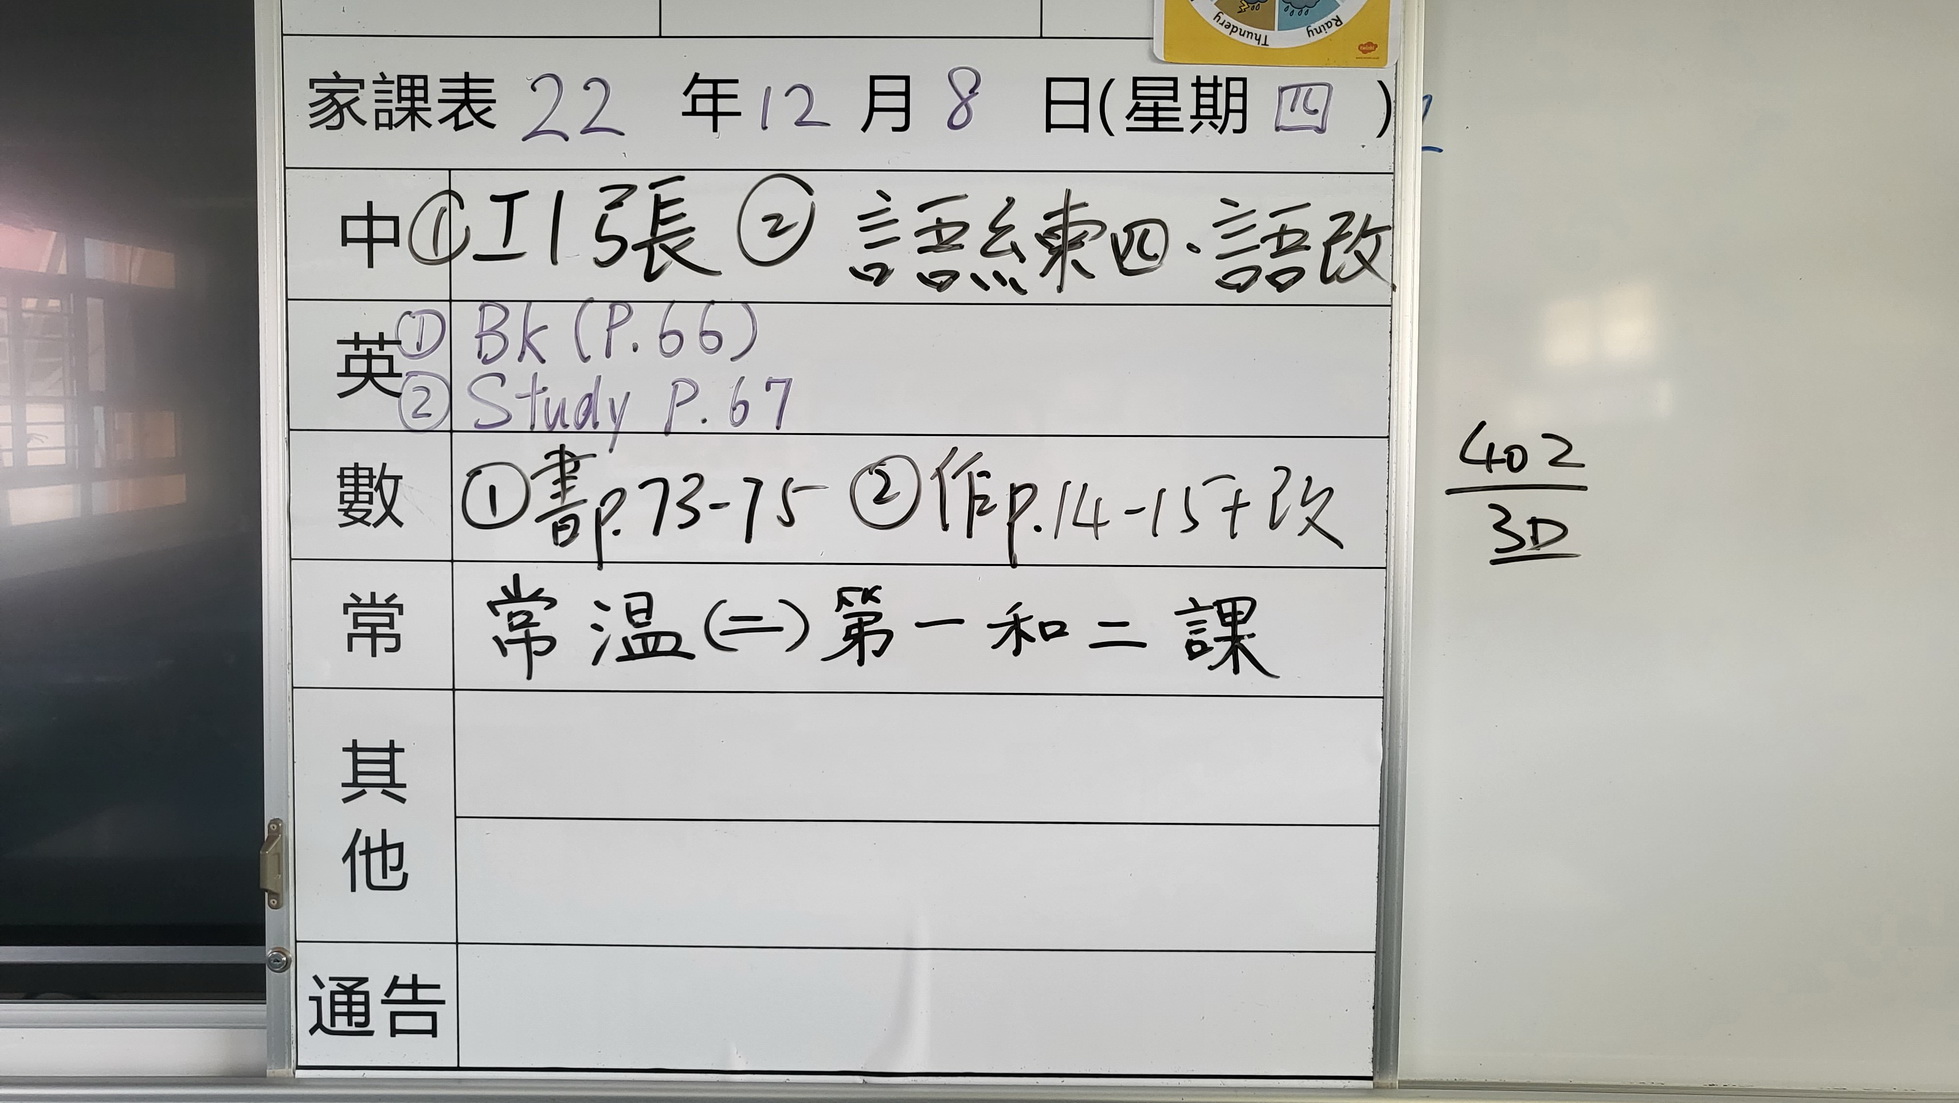 Thundery Rainy
家課表 22 年 12 月 8 日(星期 四 )
中 ① 工1張 ② 語練四·語改
英 ① Bk (P.66)
② Study P.67
數 ①書p.73-75 ②作p.14-15+改
常 常溫(二)第一和二課
其他
通告
402
3D